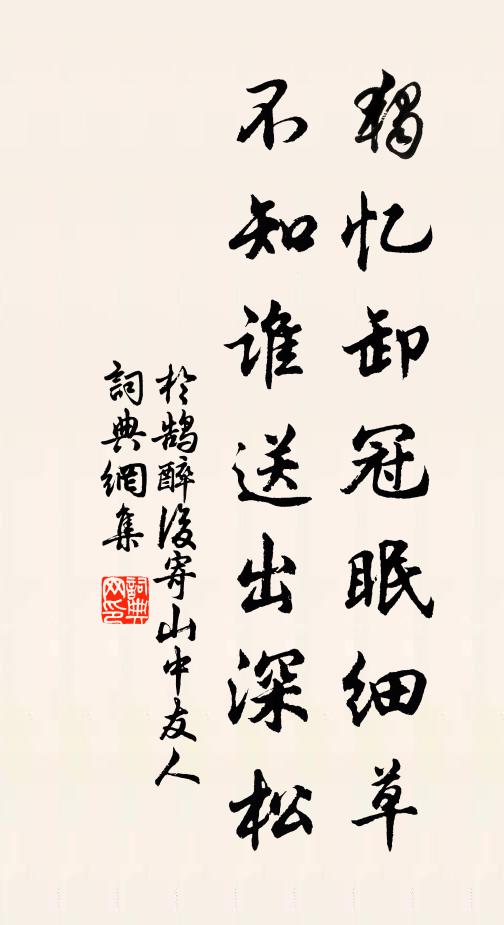 獨忆卸冠眠细草
不知谁送出深松
於鵠醉後寄山中友人
詞典網集
詞典網印